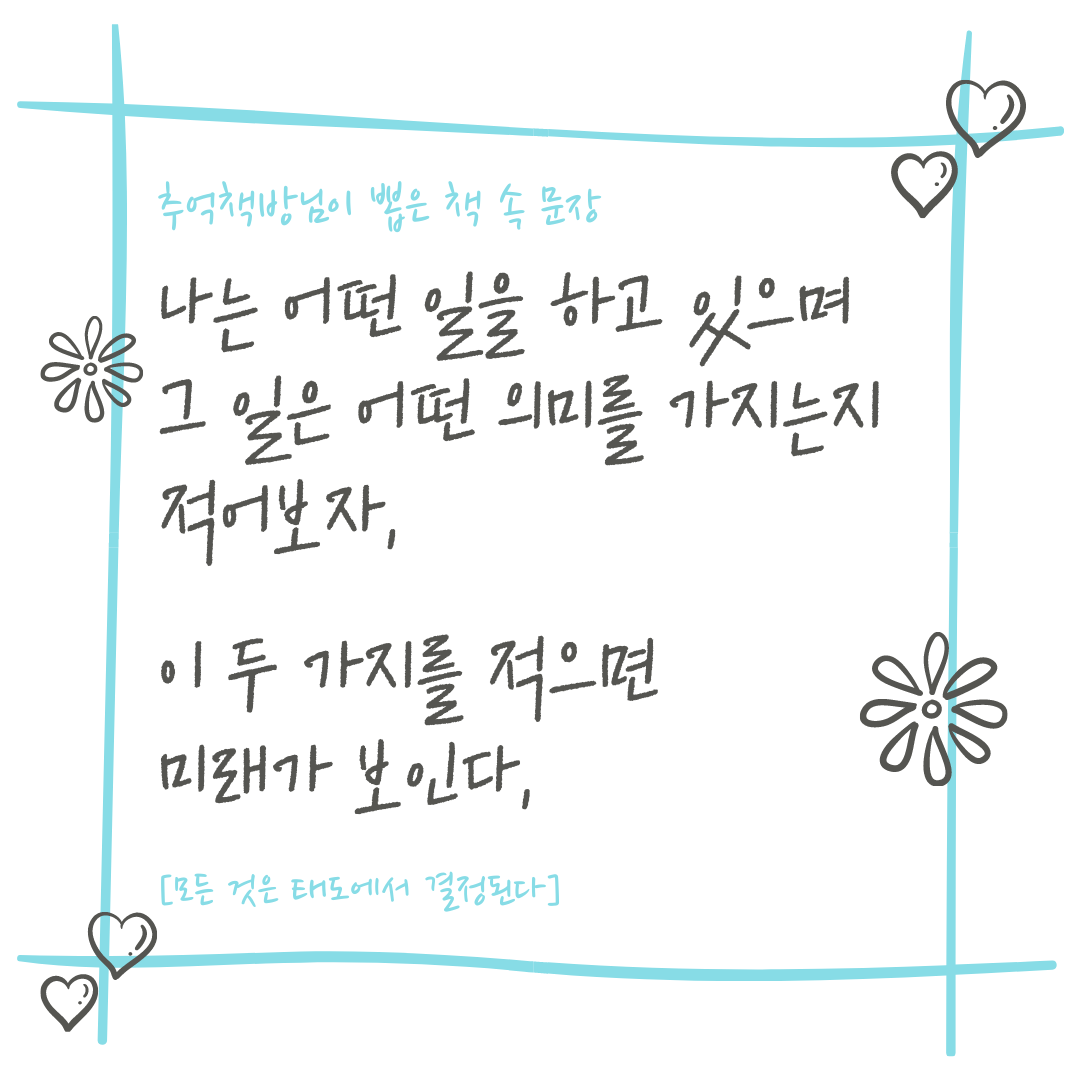 추억책방님이 뽑은 책 속 문장
나는 어떤 일을 하고 있으며
그 일은 어떤 의미를 가지는지
적어보자,
이 두 가지를 적으면
미래가 보인다,
[모든 것은 태도에서 결정된다]